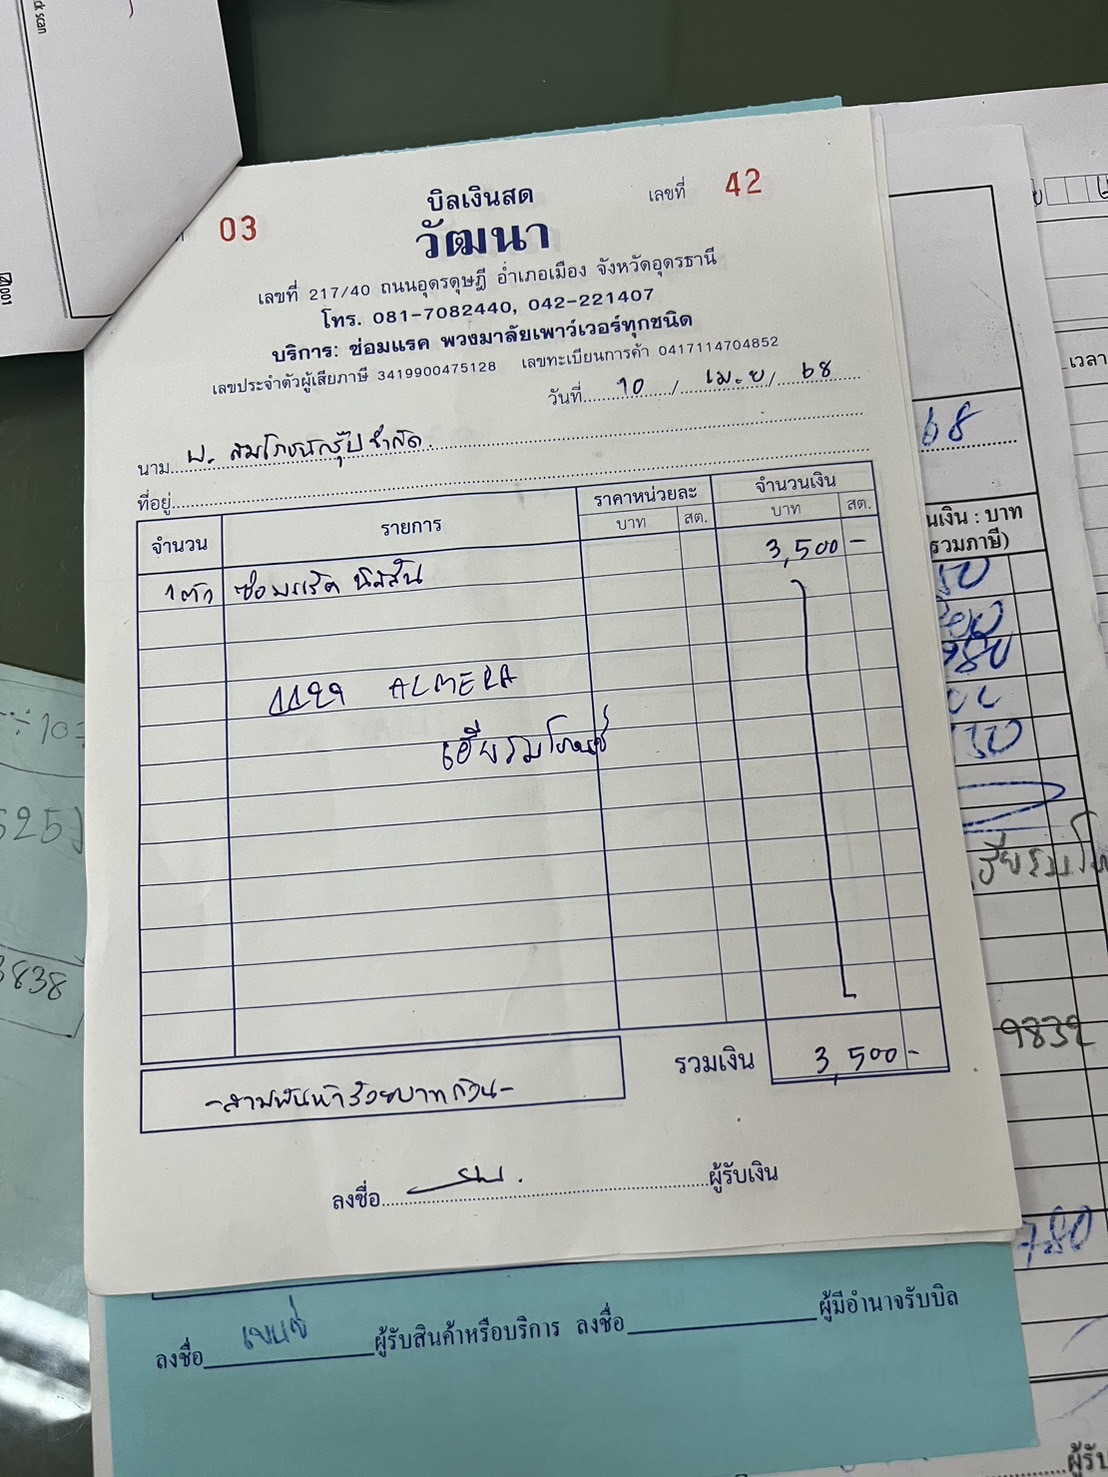 ck scan
บิลเงินสด
03
เลขที่ 42
วัฒนา
เลขที่ 217/40 ถนนอุดรดุษฎี อำเภอเมือง จังหวัดอุดรธานี
โทร. 081-7082440, 042-221407
บริการ: ซ่อมแรค พวงมาลัยเพาว์เวอร์ทุกชนิด
เลขประจำตัวผู้เสียภาษี 3419900475128 เลขทะเบียนการค้า 0417114704852
วันที่ 10 / เม.ย / 68
นาม บ. สมโภชน์กรุ๊ป จำกัด
ที่อยู่
จำนวน รายการ ราคาหน่วยละ จำนวนเงิน
บาท สต. บาท สต.
1 ตัว ซ่อมแร็ค นิสสัน 3,500 -
ALMERA
รวมเงิน 3,500 -
- สามพันห้าร้อยบาทถ้วน -
ลงชื่อ ผู้รับเงิน
ลงชื่อ ผู้รับสินค้าหรือบริการ ลงชื่อ ผู้มีอำนาจรับบิล
เวลา
68
นเงิน : บาท
รวมภาษี)
9832
780
÷ 10
3838